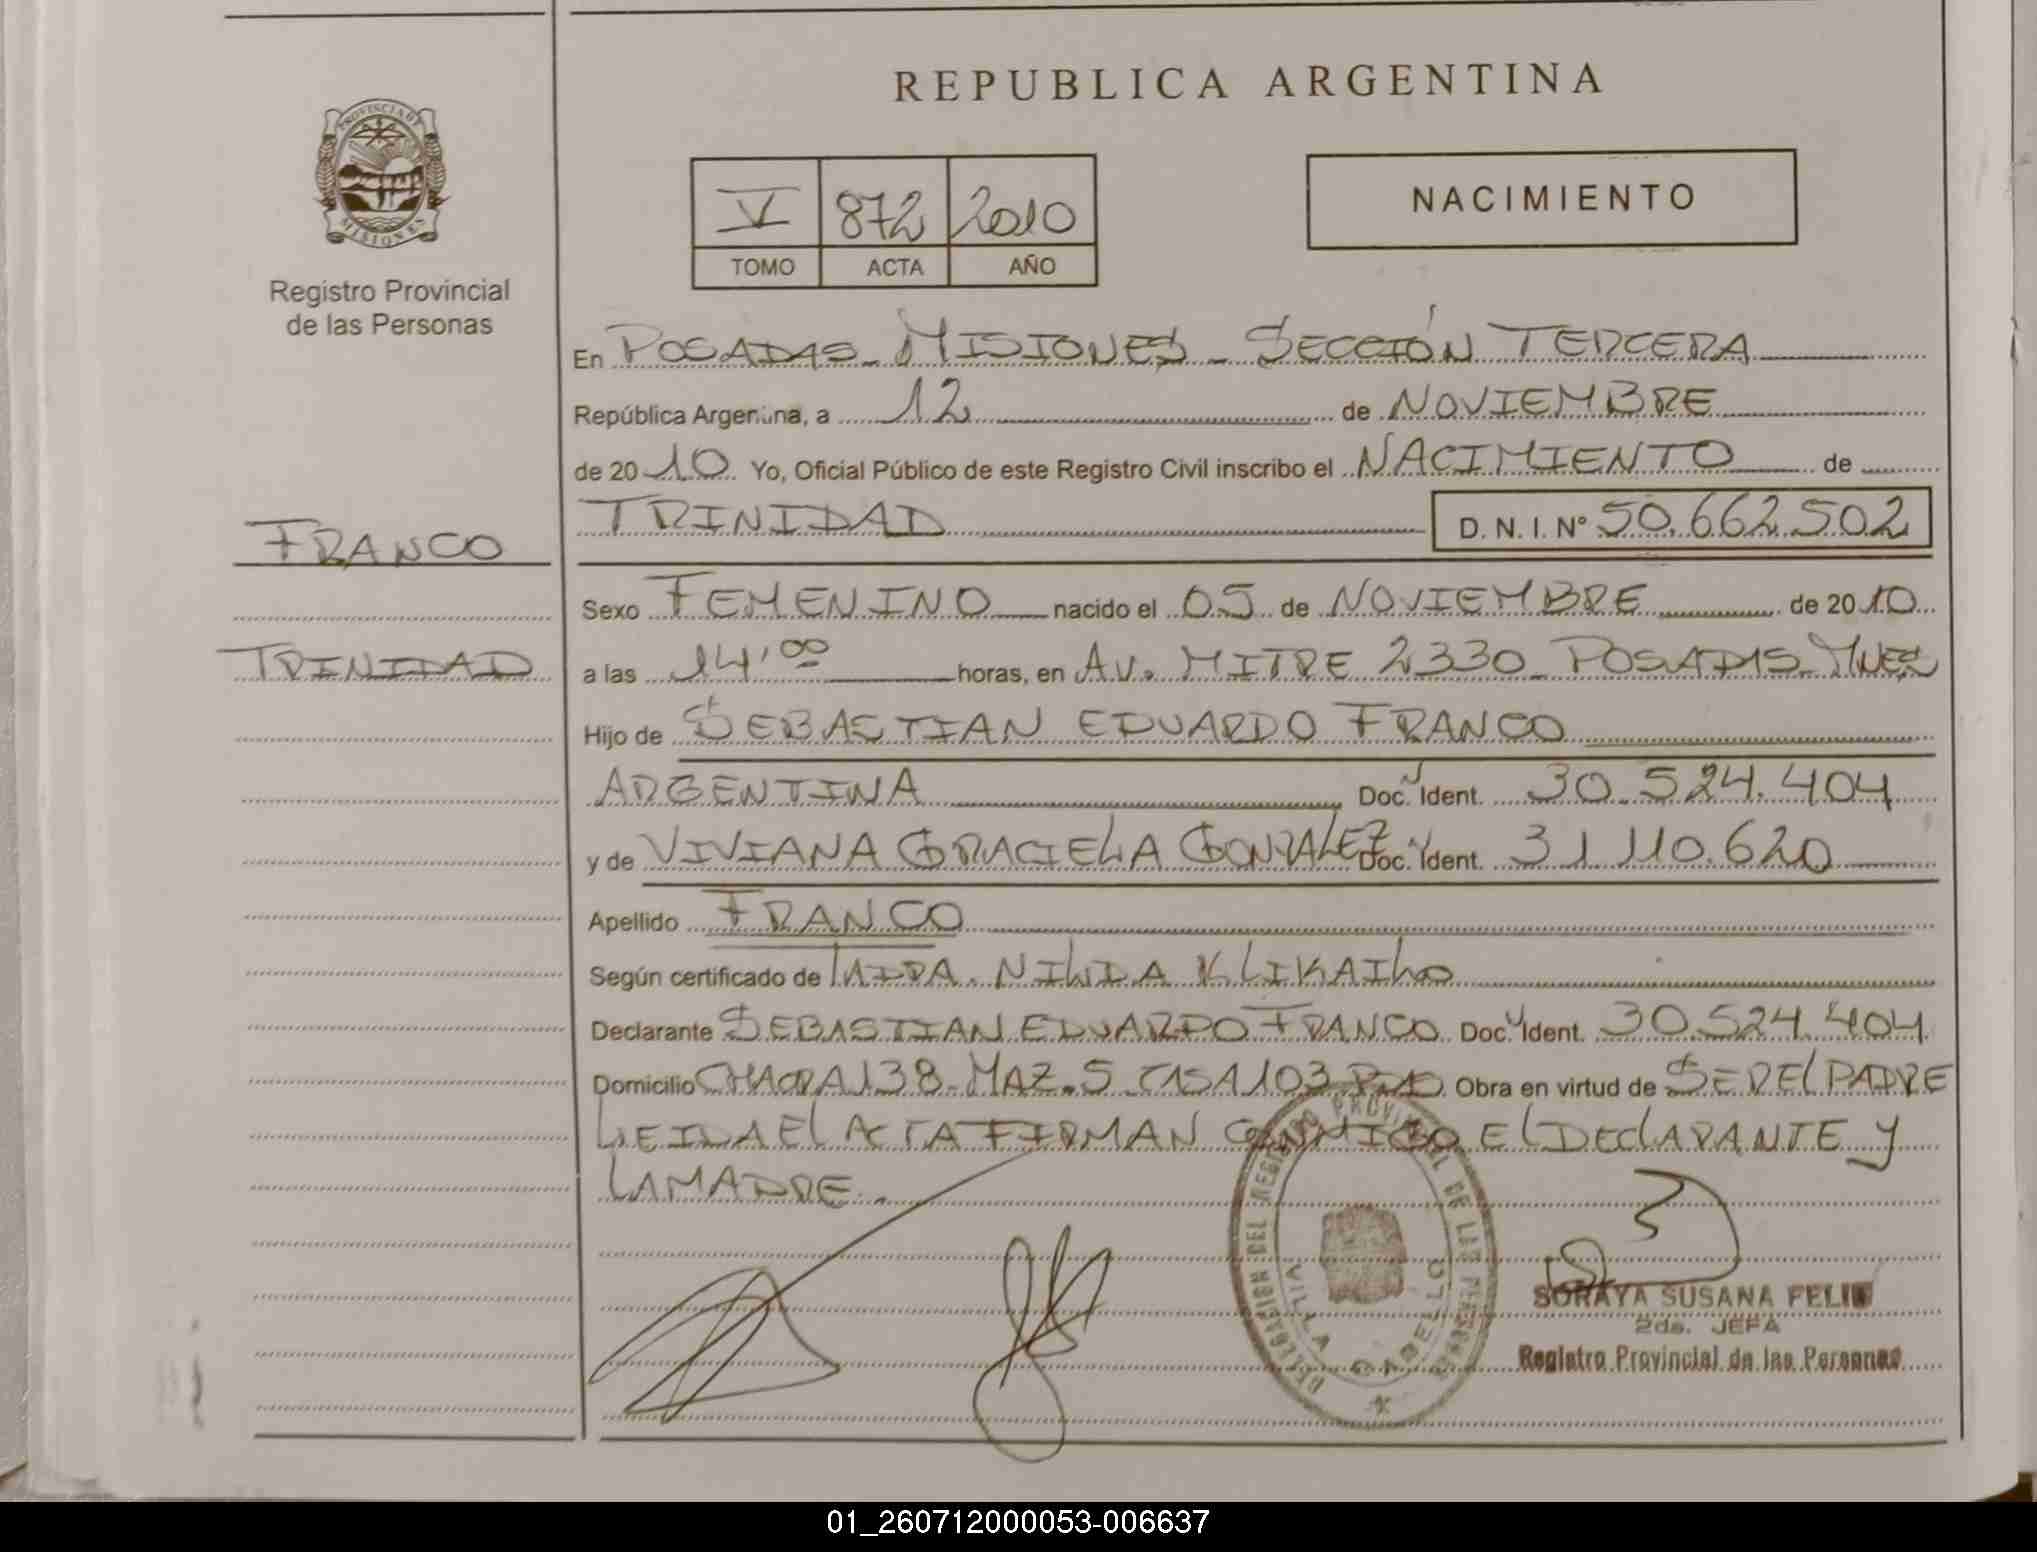 REPUBLICA ARGENTINA
PROVINCIA DE
MISIONES
Registro Provincial
de las Personas
V 872 2010
TOMO ACTA AÑO
NACIMIENTO
En POSADAS - MISIONES - SECCIÓN TERCERA
República Argentina, a 12 de NOVIEMBRE
de 2010 Yo, Oficial Público de este Registro Civil inscribo el NACIMIENTO de
TRINIDAD D. N. I. Nº 50.662.502
FRANCO
TRINIDAD
Sexo FEMENINO nacido el 05 de NOVIEMBRE de 2010
a las 14,00 horas, en AV. MITRE 2330 - POSADAS - MNES
Hijo de SEBASTIAN EDUARDO FRANCO
ARGENTINA Doc. Ident. 30.524.404
y de VIVIANA GRACIELA GONZALEZ Doc. Ident. 31.110.620
Apellido FRANCO
Según certificado de NILDA KLIKAILO
Declarante SEBASTIAN EDUARDO FRANCO Doc. Ident. 30.524.404
Domicilio CHACRA 138 - MAZ. 5 CASA 103 Obra en virtud de SER EL PADRE
LEIDA EL ACTA FIRMAN CONMIGO EL DECLARANTE Y
LA MADRE.
DELEGACION DEL REGISTRO PROVINCIAL DE LAS PERSONAS
VILLA CABELLO
SORAYA SUSANA
2da. JEFA
Registro Provincial de las Personas
01_260712000053-006637